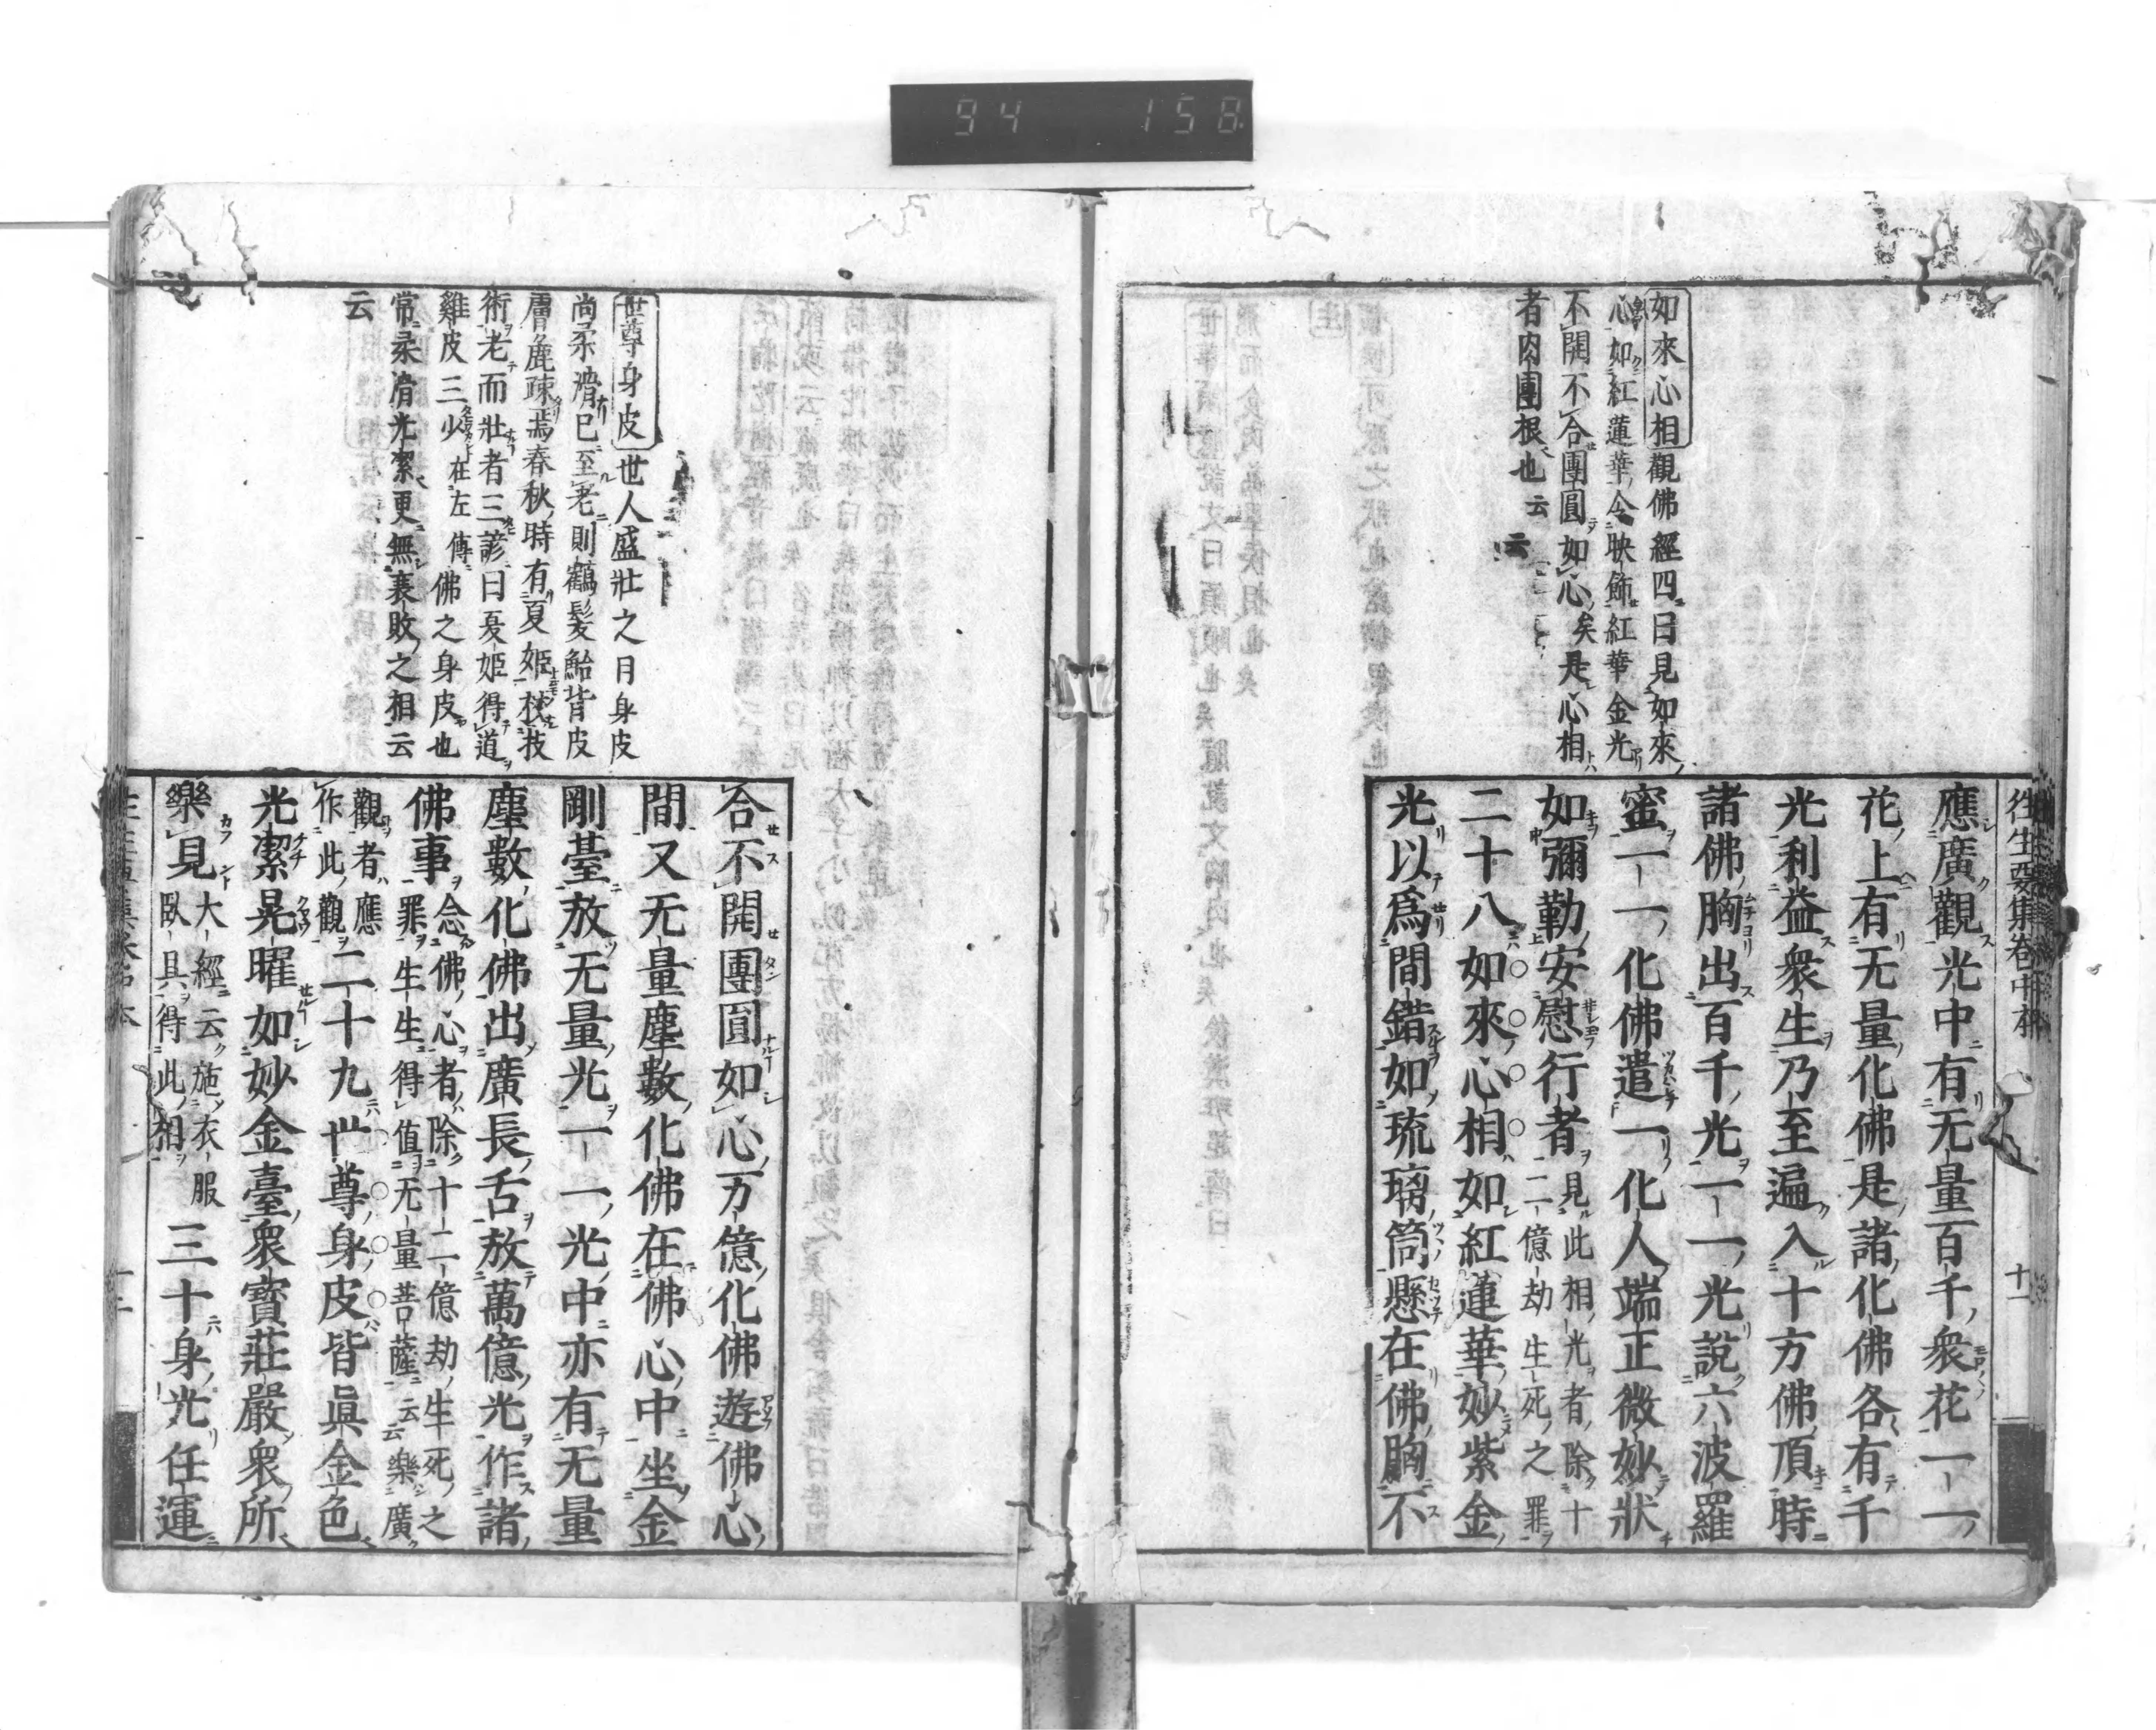 94 158
如來心相觀佛經四曰見如來
心如紅蓮華金映飾紅華金光
不開不合團圓如心矣是心相
者肉團根也云
云
往生要集卷中本
十一
應廣觀光中有无量百千衆花一一
花上有无量化佛是諸化佛各有千
光利益衆生乃至遍入十方佛頂時
諸佛胸出百千光一一光說六波羅
蜜一一化佛遣一化人端正微妙狀
如彌勒安慰行者見此相光者除十
二億劫生死之罪
二十八如來心相如紅蓮華妙紫金
光以爲間錯如琉璃筒懸在佛胸不
世尊身皮世人盛壯之月身皮
尚柔滑已至老則鶴髮鮐背皮
膚麁疎焉春秋時有夏姬挾技
術老而壯者三諺曰夏姬得道
雞皮三少在左傳佛之身皮也
常柔滑光潔更無衰敗之相云
云
合不開團圓如心万億化佛遊佛心
間又无量塵數化佛在佛心中坐金
剛臺放无量光一一光中亦有无量
塵數化佛出廣長舌放萬億光作諸
佛事念佛心者除十二億劫生死之
罪生生得值无量菩薩云云樂廣
觀者應
作此觀二十九世尊身皮皆眞金色
光潔晃曜如妙金臺衆寶莊嚴衆所
樂見大經云施衣服
臥具得此相三十身光任運